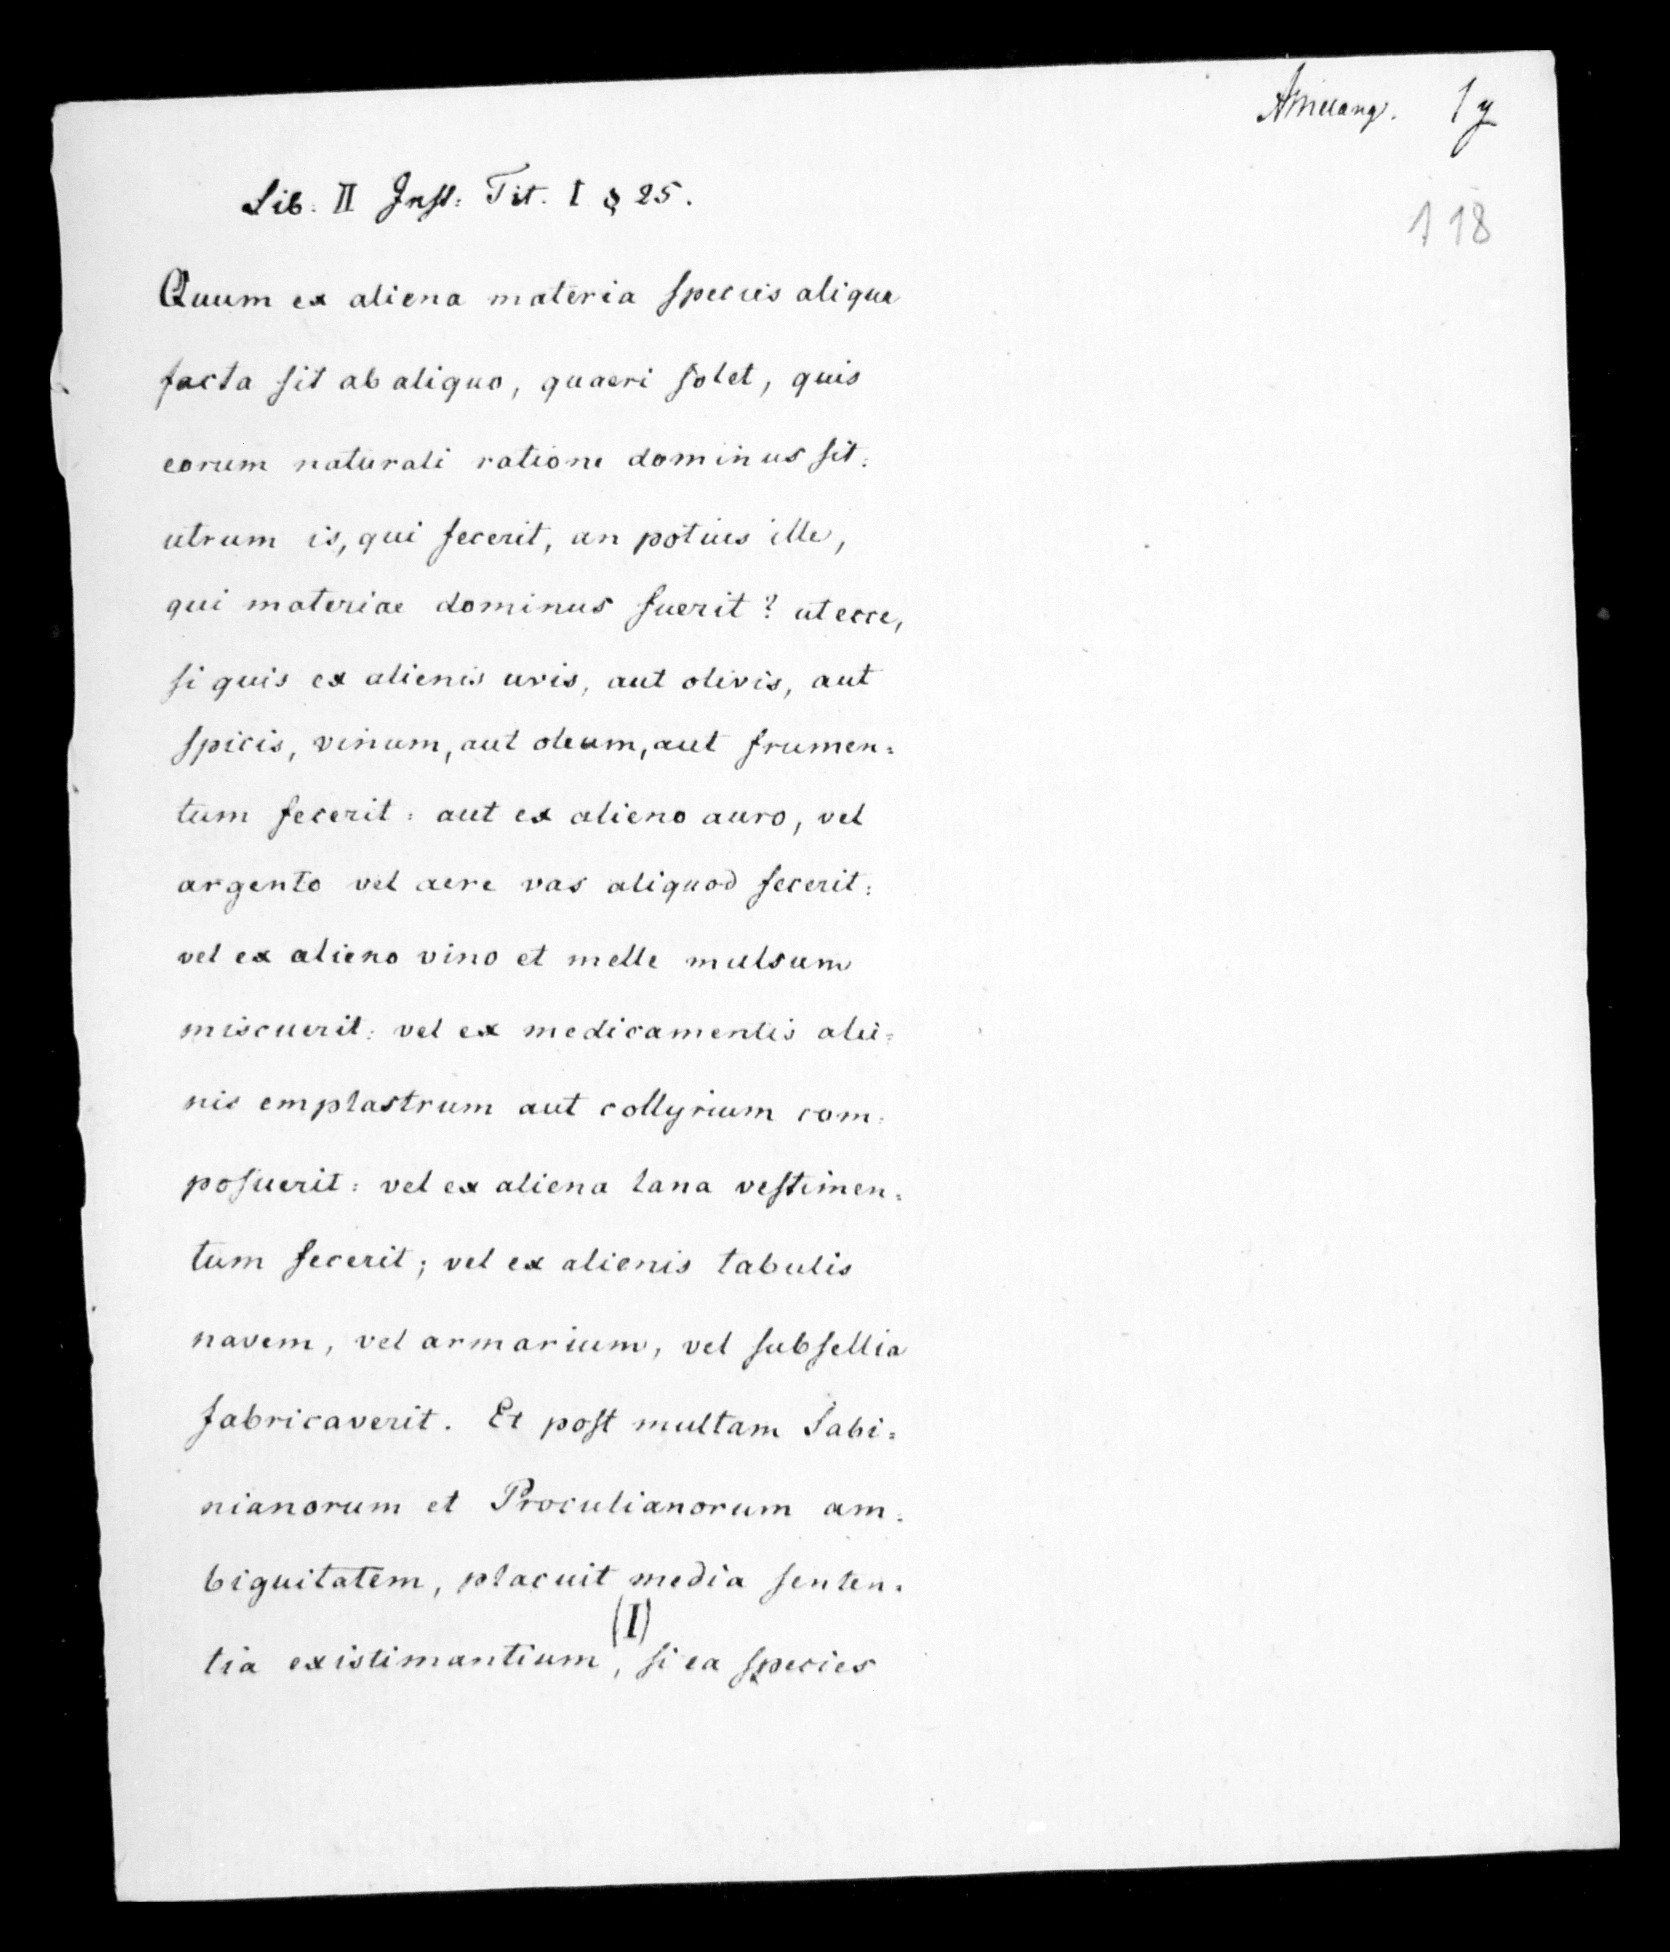 Amelang. 1
118
Lib: II Inst: Tit. I § 25.
Quum ex aliena materia species aliqua
facta sit ab aliquo, quaeri solet, quis
eorum naturali ratione dominus sit:
utrum is, qui fecerit, an potius ille,
qui materiae dominus fuerit? ut ecce,
si quis ex alienis uvis, aut olivis, aut
spicis, vinum, aut oleum, aut frumen=
tum fecerit: aut ex alieno auro, vel
argento vel aere vas aliquod fecerit:
vel ex alieno vino et melle mulsum
miscuerit: vel ex medicamentis alie=
nis emplastrum aut collyrium com=
posuerit: vel ex aliena lana vestimen=
tum fecerit; vel ex alienis tabulis
navem, vel armarium, vel subsellia
fabricaverit. Et post multam Sabi=
nianorum et Proculianorum am=
biguitatem, placuit media senten=
(I)
tia existimantium, si ea species